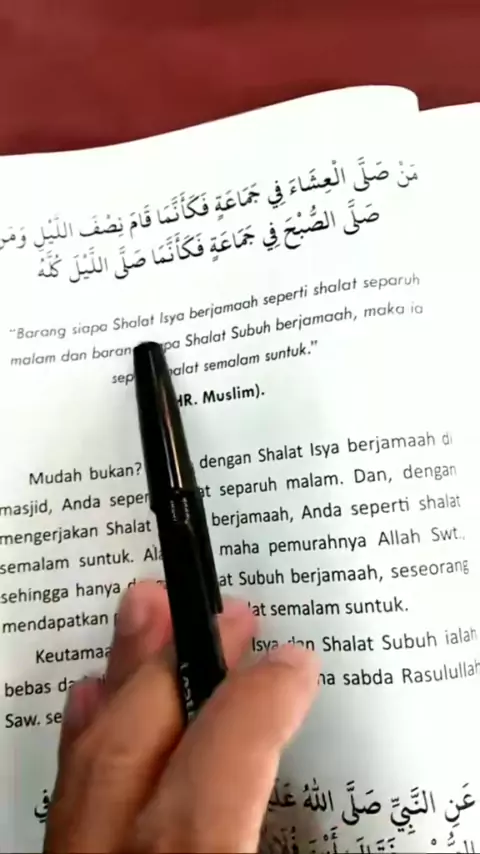 مَنْ صَلَّى الْعِشَاءَ فِي جَمَاعَةٍ فَكَأَنَّمَا قَامَ نِصْفَ اللَّيْلِ وَمَن
صَلَّى الصُّبْحَ فِي جَمَاعَةٍ فَكَأَنَّمَا صَلَّى اللَّيْلَ كُلَّهُ
"Barang siapa Shalat Isya berjamaah seperti shalat separuh
malam dan Shalat Subuh berjamaah, maka ia
semalam suntuk."
Muslim).
Mudah bukan? dengan Shalat Isya berjamaah di
masjid, Anda separuh malam. Dan, dengan
mengerjakan Shalat berjamaah, Anda seperti shalat
semalam suntuk. maha pemurahnya Allah Swt.,
sehingga hanya Subuh berjamaah, seseorang
mendapatkan semalam suntuk.
Isya dan Shalat Subuh ialah
bebas sabda Rasulullah
Saw.
عَنِ النَّبِيِّ صَلَّى اللهُ